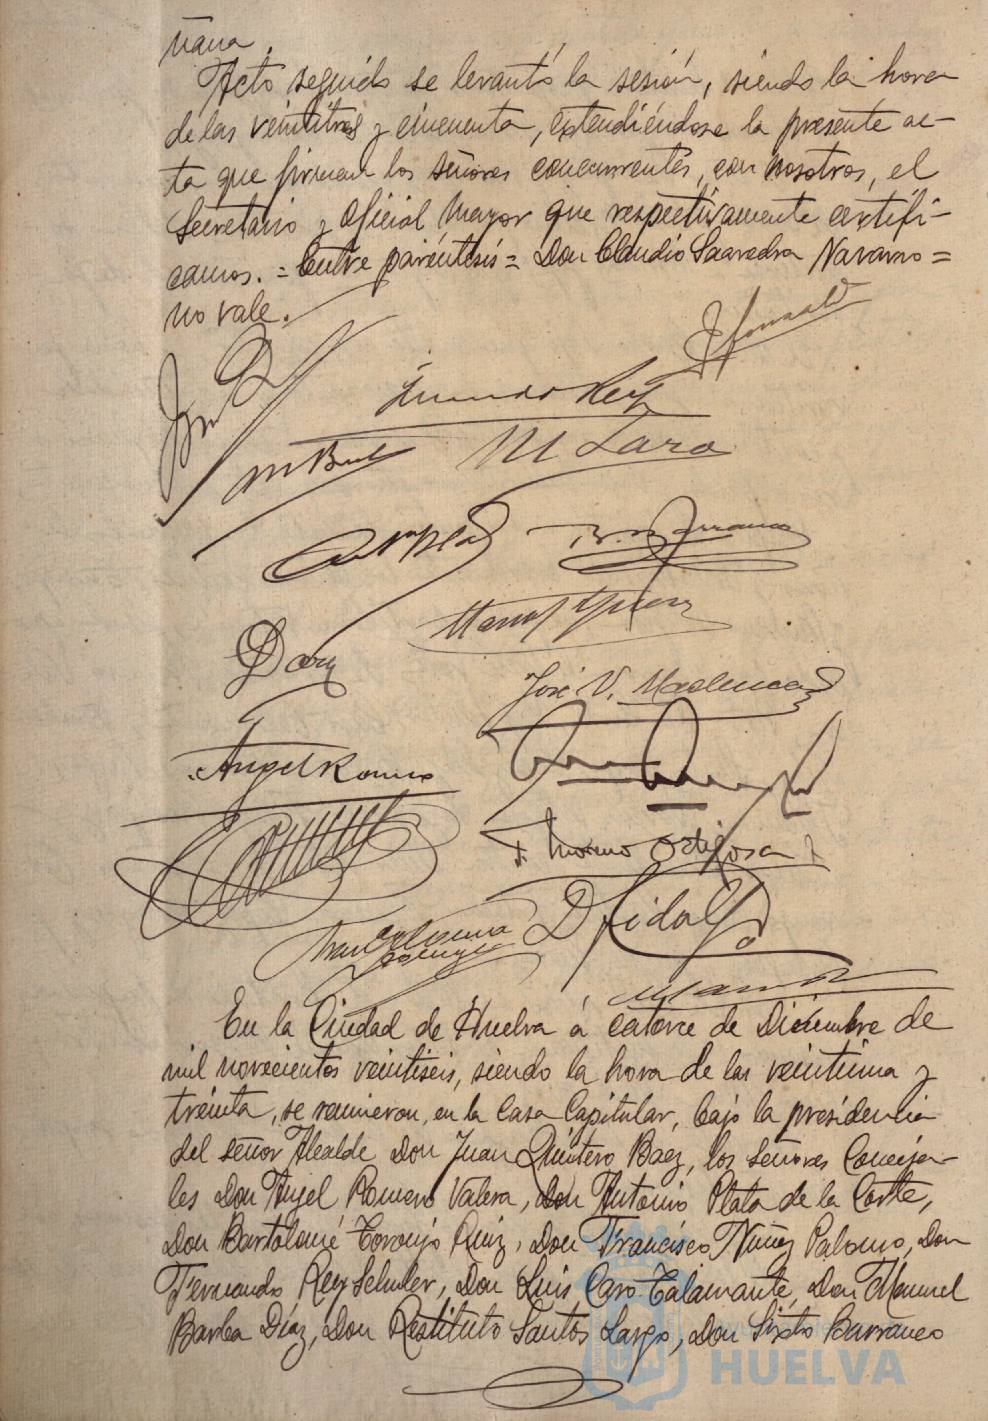 ñana.
Acto seguido se levantó la sesión, siendo la hora
de las veintitres y cincuenta, extendiéndose la presente ac-
ta que firman los señores concurrentes, con nosotros, el
Secretario y Oficial Mayor que respectivamente certifi-
camos. = Entre paréntesis = Don Claudio Saavedra Navarro =
no vale.
M Lara
José V.
Angel Romero
Ortigosa
D Hidalgo
En la Ciudad de Huelva á catorce de Diciembre de
mil novecientos veintiseis, siendo la hora de las veintiuna y
treinta, se reunieron, en la Casa Capitular, bajo la presidencia
del señor Alcalde Don Juan Quintero Baez, los señores Conceja-
les Don Angel Romero Valera, Don Antonio Plata de la Corte,
Don Bartolomé Toronjo Ruiz, Don Francisco Núñez Palomo, Don
Fernando Rey Schuler, Don Luis Caro Talamante, Don Manuel
Barba Díaz, Don Restituto Santos Largo, Don Sixto Barranco
HUELVA